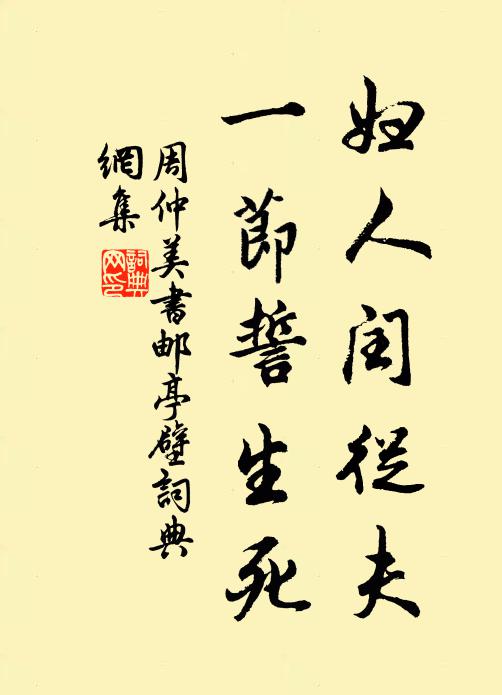 妇人闰從夫
一節誓生死
周仲美書邮亭壁詞典
網集
詞典
网印